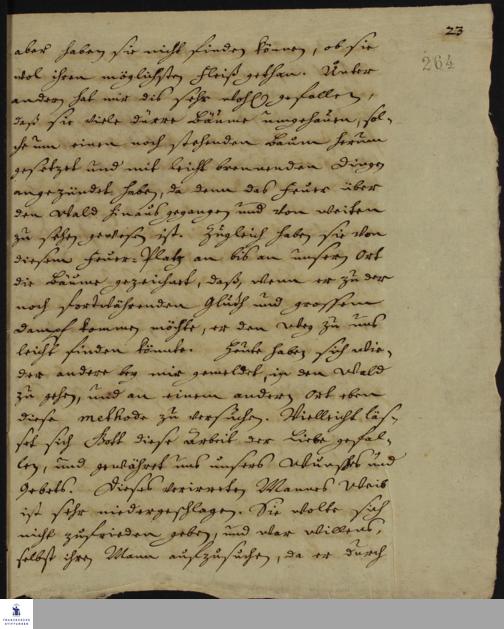 23
264
aber haben sie nicht finden können, ob sie
wol ihren möglichsten Fleiß gethan. Unter
andern hat mir dis sehr wohl gefallen,
daß sie viele dürre Bäume umgehauen, sol-
che um einen noch stehenden Baum herum
gesetzet und mit leicht brennenden Dingen
angezündet haben, da denn das Feuer über
den Wald hinaus gegangen und von weiten
zu sehen gewesen ist. Zugleich haben sie von
diesem Feuer-Platz an bis an unsern Ort
die Bäume gezeichnet, daß, wenn er zu der
noch fortwährenden Gluth und grossem
Dampf kommen möchte, er den Weg zu uns
leicht finden könnte. Heute haben sich wie-
der andere bey mir gemeldet, in den Wald
zu gehen, und an einem andern Ort eben
diese methode zu versuchen. Vielleicht läs-
set sich Gott diese Arbeit der Liebe gefal-
len, und gewähret uns unsers Wunsches und
Gebets. Dieses verirreten Mannes Weib
ist sehr niedergeschlagen. Sie wolte sich
nicht zufrieden geben, und war willens,
selbst ihren Mann aufzusuchen, da er durch
FRANCKESCHE
STIFTUNGEN